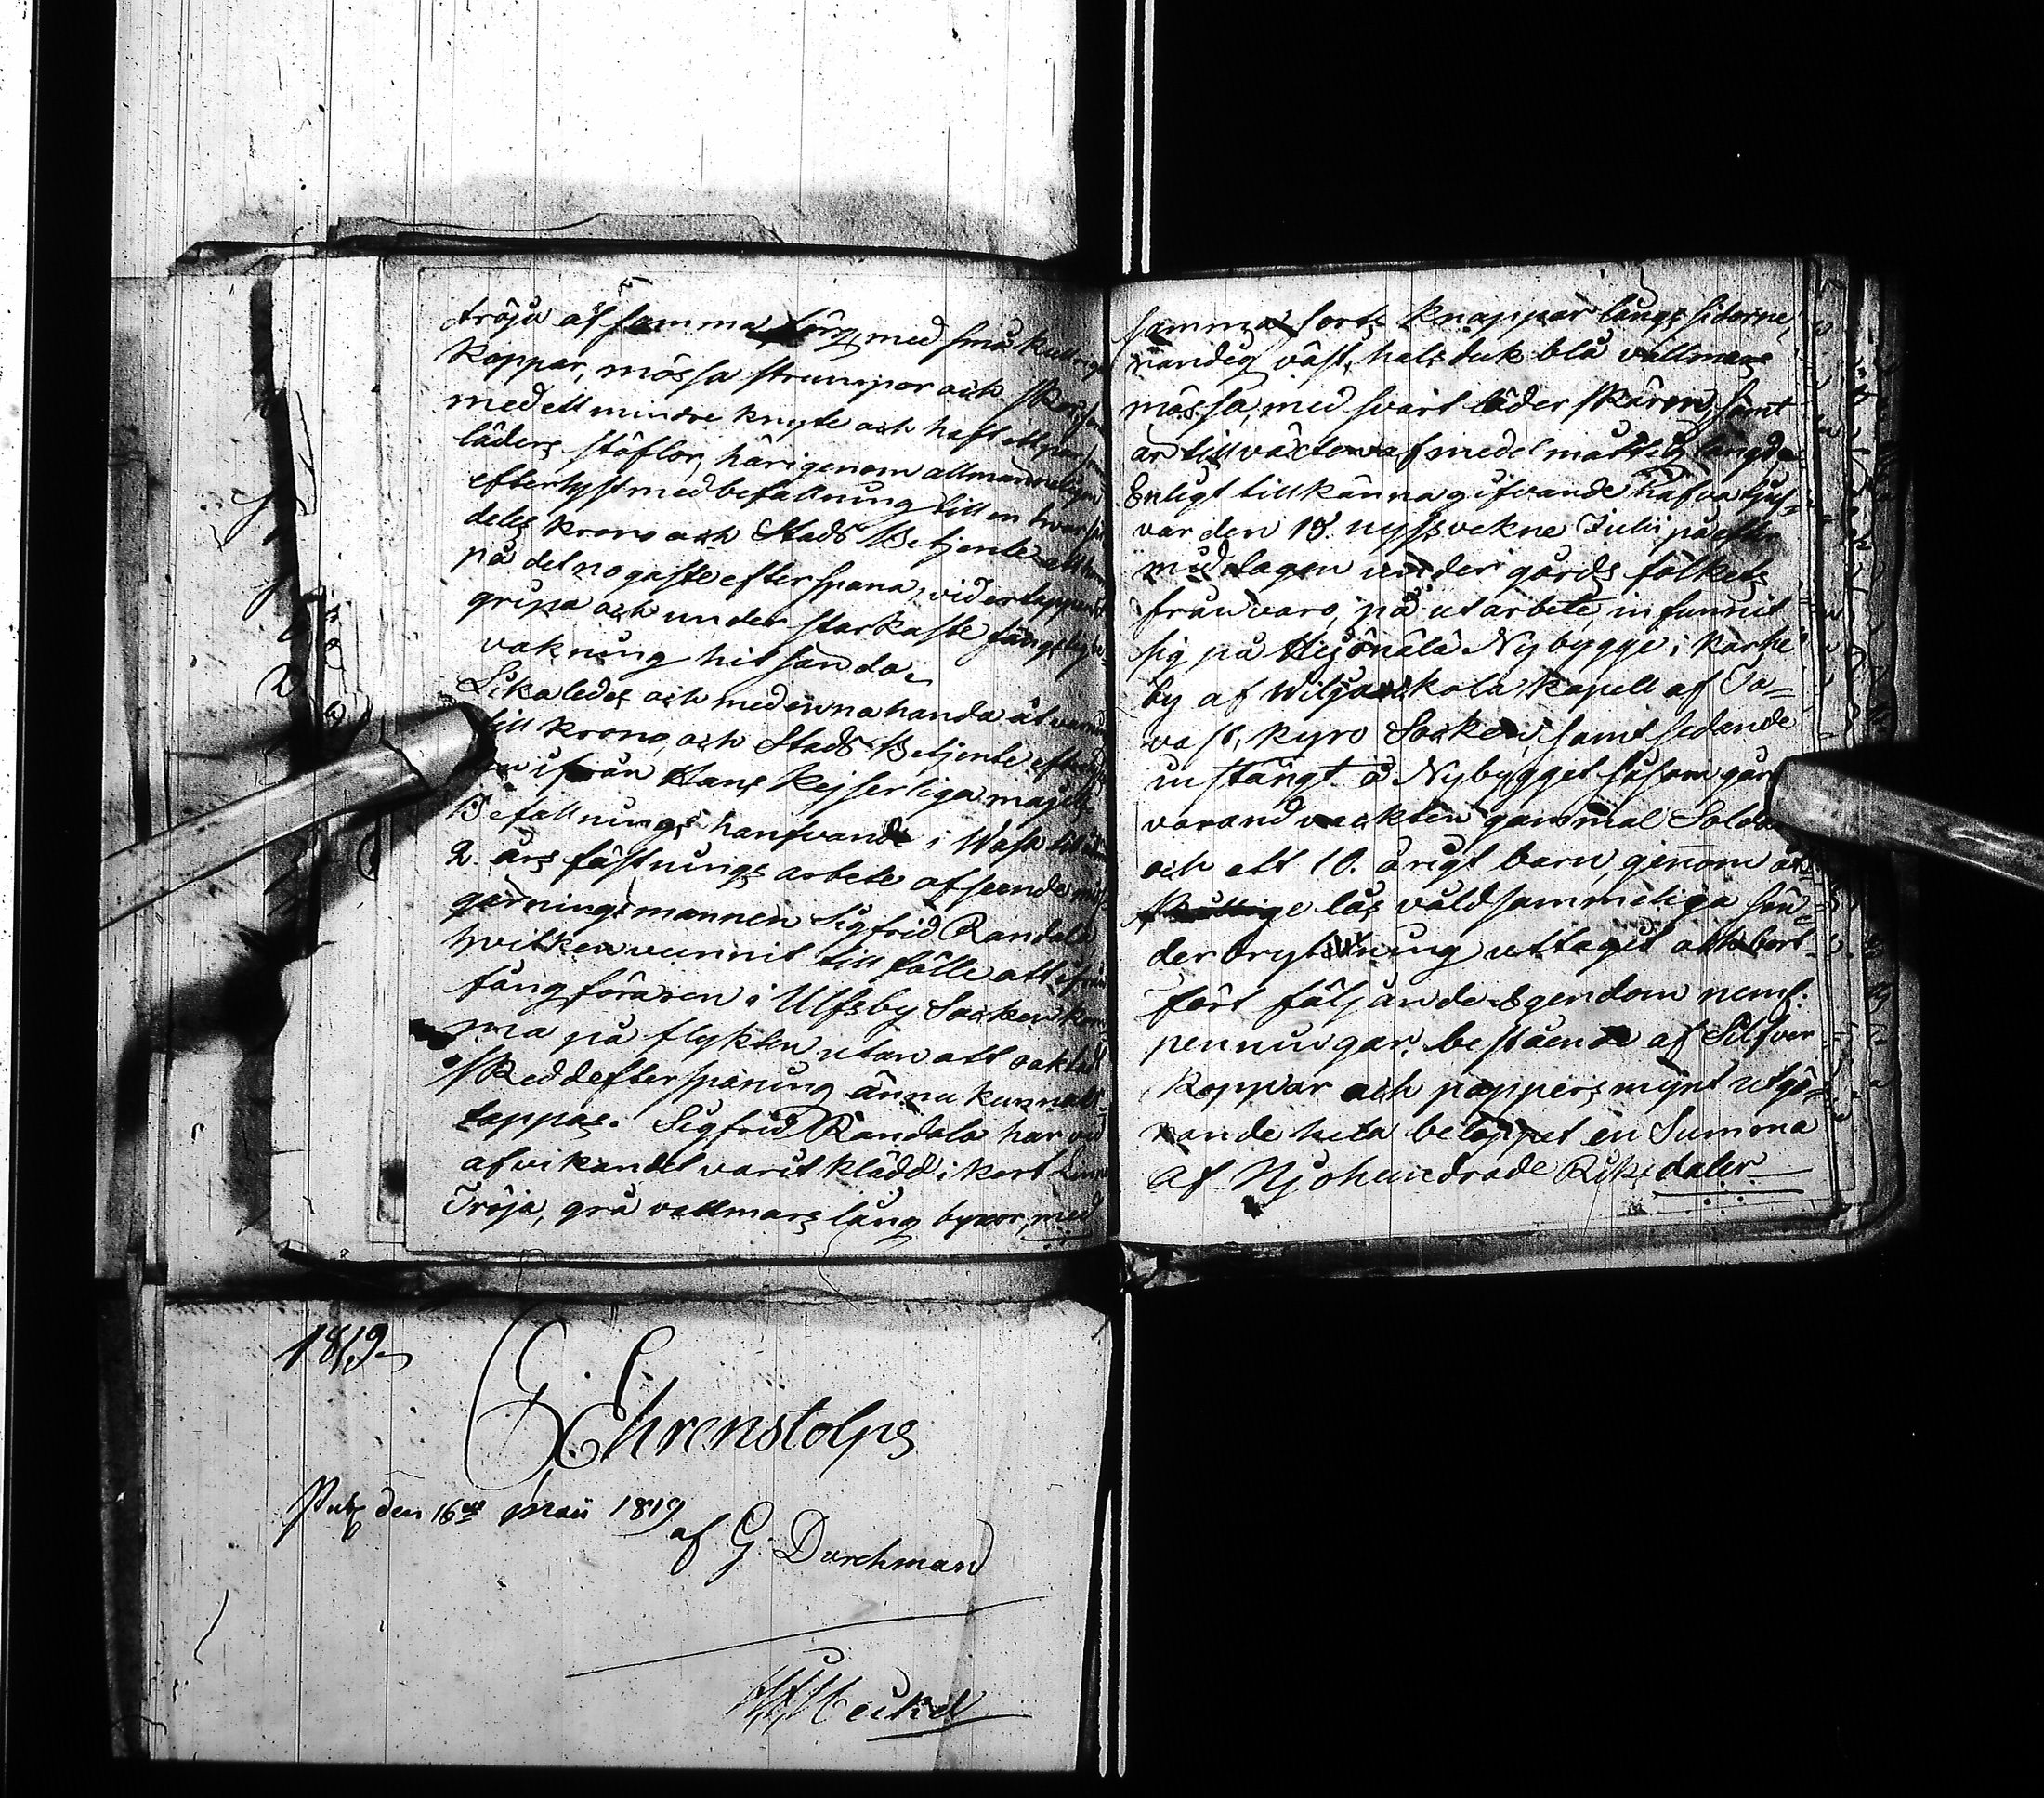 tröja af samma färg med små kullriga
Koppar, mössa strumpor och skor, samt
med ett mindre knyte och haft ett par
läders stöflor, härigenom allmänneligen
efterlyst med befallning till en hvar
dels krono och Stads Betjente att
på det nogaste efterspana, vid ertappande
gripa och under starkaste fängslig be-
vakning hit sända.
Lika ledes och med enna handa åtvarn
till krono, och Stads Betjente efter
ifrån Hans Kejserliga majts
Befallnings hanfvande i Wasa till
2. års fästnings arbete afsende miss
gerningsmannen Sigfrid Randala
hvilken vunnit till fälle att ifrån
fångföraren i Ulfsby Socken kom
ma på flykten utan att oaktad
skedd efterspaning ännu kunnat
tappas. Sigfrid Randala har vid
afvikandet varit klädd i kort
Tröja, grå vallmars lång byxor, med
samma sorts knappar längs sidorne,
randig väst, halsduk blå vallmars
mössa, med svart läder skärm, samt
är till växten af medelmåttig längd.
Enligt tillkänna gifvande hafva tjuf-
var den 15. nyssvekne Julii på efter
middagen under gårds fölkets
frånvaro, på utarbete, infunnit
sig på Nybygge i Karhe
by af kapell af Ta-
vast, kyro Socken, samt sedande
instängt å Nybygget såsom gård
varand vackten gammal Soldat
och ett 10. årigt barn, genom åt
lås våldsammeliga sön-
derbrytning uttagit och bort-
fört följande Egendom neml:
penningar, bestående af Silfver
Koppar och pappers mynt utgö-
rande hela beloppet en Summa
af Njohundrade Riksdaler
1819.
G Ehrenstolpe
den 16de Maii 1819
af G. Durchman